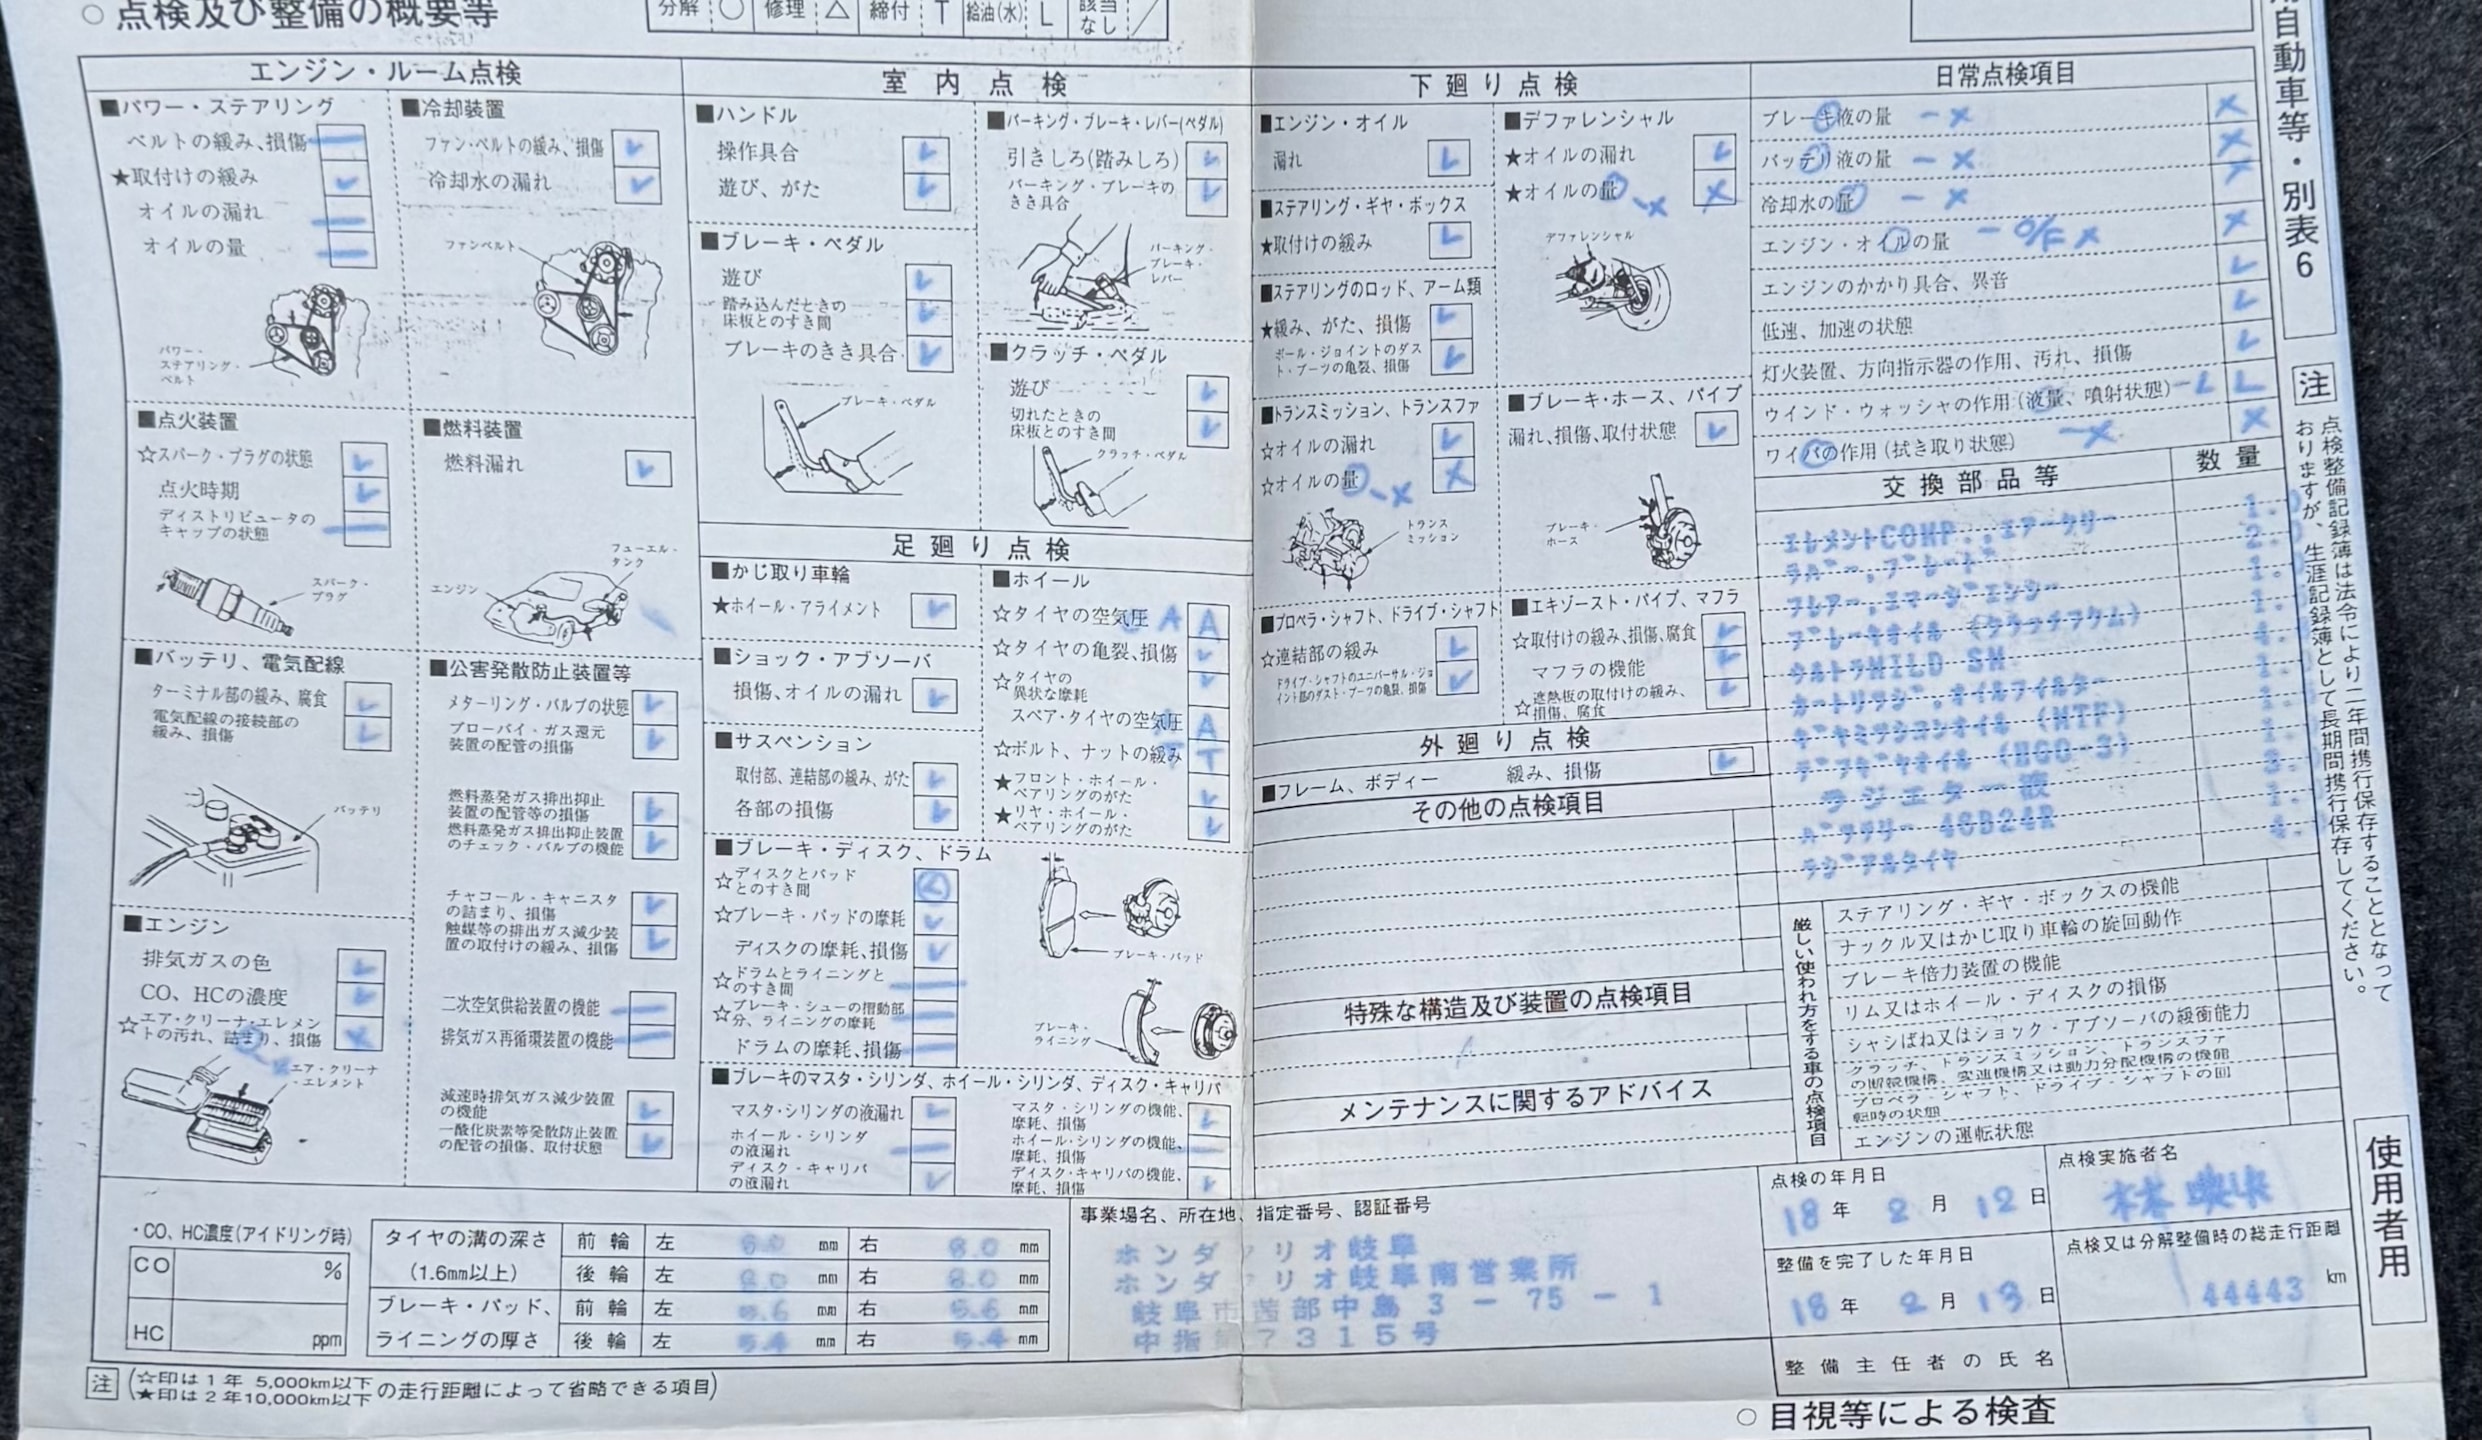 ○ 点検及び整備の概要等
分解 ○ 修理 △ 締付 T 給油(水) L 該当なし ／
エンジン・ルーム点検
■パワー・ステアリング
ベルトの緩み、損傷 ―
★取付けの緩み レ
オイルの漏れ ―
オイルの量 ―
パワー・
ステアリング・
ベルト
■冷却装置
ファン・ベルトの緩み、損傷 レ
冷却水の漏れ レ
ファンベルト
■点火装置
☆スパーク・プラグの状態 レ
点火時期 レ
ディストリビュータの
キャップの状態 ―
スパーク・
プラグ
■燃料装置
燃料漏れ レ
フューエル・
タンク
エンジン
■バッテリ、電気配線
ターミナル部の緩み、腐食 レ
電気配線の接続部の
緩み、損傷 レ
バッテリ
■公害発散防止装置等
メターリング・バルブの状態 レ
ブローバイ・ガス還元
装置の配管の損傷 レ
燃料蒸発ガス排出抑止
装置の配管等の損傷 レ
燃料蒸発ガス排出抑止装置
のチェック・バルブの機能 レ
チャコール・キャニスタ
の詰まり、損傷 レ
触媒等の排出ガス減少装
置の取付けの緩み、損傷 レ
二次空気供給装置の機能 ―
排気ガス再循環装置の機能 ―
減速時排気ガス減少装置
の機能 レ
一酸化炭素等発散防止装置
の配管の損傷、取付状態 レ
■エンジン
排気ガスの色 レ
CO、HCの濃度 レ
☆エア・クリーナ・エレメン
トの汚れ、詰まり、損傷 ×
エア・クリーナ
・エレメント
室内点検
■ハンドル
操作具合 レ
遊び、がた レ
■ブレーキ・ペダル
遊び レ
踏み込んだときの
床板とのすき間 レ
ブレーキのきき具合 レ
ブレーキ・ペダル
■パーキング・ブレーキ・レバー(ペダル)
引きしろ(踏みしろ) レ
パーキング・ブレーキの
きき具合 レ
パーキング・
ブレーキ・
レバー
■クラッチ・ペダル
遊び レ
切れたときの
床板とのすき間 レ
クラッチ・ペダル
足廻り点検
■かじ取り車輪
★ホイール・アライメント レ
■ショック・アブソーバ
損傷、オイルの漏れ レ
■サスペンション
取付部、連結部の緩み、がた レ
各部の損傷 レ
■ホイール
☆タイヤの空気圧 A A
☆タイヤの亀裂、損傷 レ
☆タイヤの
異状な摩耗 レ
スペア・タイヤの空気圧 A
☆ボルト、ナットの緩み T
★フロント・ホイール・
ベアリングのがた レ
★リヤ・ホイール・
ベアリングのがた レ
■ブレーキ・ディスク、ドラム
☆ディスクとパッド
とのすき間 レ
☆ブレーキ・パッドの摩耗 レ
ディスクの摩耗、損傷 レ
☆ドラムとライニングと
のすき間 ―
☆ブレーキ・シューの摺動部
分、ライニングの摩耗 ―
ドラムの摩耗、損傷 ―
ブレーキ・パッド
ブレーキ・
ライニング
■ブレーキのマスタ・シリンダ、ホイール・シリンダ、ディスク・キャリパ
マスタ・シリンダの液漏れ レ
ホイール・シリンダ
の液漏れ ―
ディスク・キャリパ
の液漏れ レ
マスタ・シリンダの機能、
摩耗、損傷 レ
ホイール・シリンダの機能、
摩耗、損傷 ―
ディスク・キャリパの機能、
摩耗、損傷 レ
下廻り点検
■エンジン・オイル
漏れ レ
■ステアリング・ギヤ・ボックス
★取付けの緩み レ
■ステアリングのロッド、アーム類
★緩み、がた、損傷 レ
ボール・ジョイントのダス
ト・ブーツの亀裂、損傷 レ
■トランスミッション、トランスファ
☆オイルの漏れ レ
☆オイルの量 -× ×
トランス
ミッション
■プロペラ・シャフト、ドライブ・シャフト
☆連結部の緩み レ
ドライブ・シャフトのユニバーサル・ジョ
イント部のダスト・ブーツの亀裂、損傷 レ
■デファレンシャル
★オイルの漏れ レ
★オイルの量 -× ×
デファレンシャル
■ブレーキ・ホース、パイプ
漏れ、損傷、取付状態 レ
ブレーキ・
ホース
■エキゾースト・パイプ、マフラ
☆取付けの緩み、損傷、腐食 レ
マフラの機能 レ
☆遮熱板の取付けの緩み、
損傷、腐食 レ
外廻り点検
■フレーム、ボディー 緩み、損傷 レ
その他の点検項目
特殊な構造及び装置の点検項目
メンテナンスに関するアドバイス
日常点検項目
ブレーキ液の量 -× ×
バッテリ液の量 -× ×
冷却水の量 -×
エンジン・オイルの量 - O/F × ×
エンジンのかかり具合、異音 レ
低速、加速の状態 レ
灯火装置、方向指示器の作用、汚れ、損傷 レ
ウインド・ウォッシャの作用(液量、噴射状態) -L L
ワイパの作用(拭き取り状態) -× ×
交換部品等 数量
エレメントCOMP.,エアークリー 1.
ラバー,ブレード 2.0
フレアー,エマージエンシー 1.
ブレーキオイル (クラッチフクム) 1.
ウルトラMILD SM 4.
カートリツジ,オイルフイルター 1.
ギヤミツシヨンオイル (MTF) 1.
デフギヤオイル (HGO-3) 1.
ラジエター液 3.
バツテリー 46B24R 1.
ラジアルタイヤ 4.
厳しい使われ方をする車の点検項目
ステアリング・ギヤ・ボックスの機能
ナックル又はかじ取り車輪の旋回動作
ブレーキ倍力装置の機能
リム又はホイール・ディスクの損傷
シャシばね又はショック・アブソーバの緩衝能力
クラッチ、トランスミッション、トランスファ
の断続機構、変速機構又は動力分配機構の機能
プロペラ・シャフト、ドライブ・シャフトの回
転時の状態
エンジンの運転状態
・CO、HC濃度(アイドリング時)
CO %
HC ppm
タイヤの溝の深さ
(1.6mm以上)
前輪 左 8.0 mm 右 8.0 mm
後輪 左 8.0 mm 右 8.0 mm
ブレーキ・パッド、
ライニングの厚さ
前輪 左 5.6 mm 右 5.6 mm
後輪 左 5.4 mm 右 5.4 mm
事業場名、所在地、指定番号、認証番号
ホンダ リオ岐阜
ホンダ リオ岐阜南営業所
岐阜市茜部中島3-75-1
中指第7315号
点検の年月日
18年 2月 12日
点検実施者名
整備を完了した年月日
18年 2月 13日
点検又は分解整備時の総走行距離
44443 km
整備主任者の氏名
注 (☆印は1年 5,000km以下
★印は2年10,000km以下 の走行距離によって省略できる項目)
○ 目視等による検査
用自動車等・別表6
注 点検整備記録簿は法令により二年間携行保存することとなって
おりますが、生涯記録簿として長期間携行保存してください。
使用者用